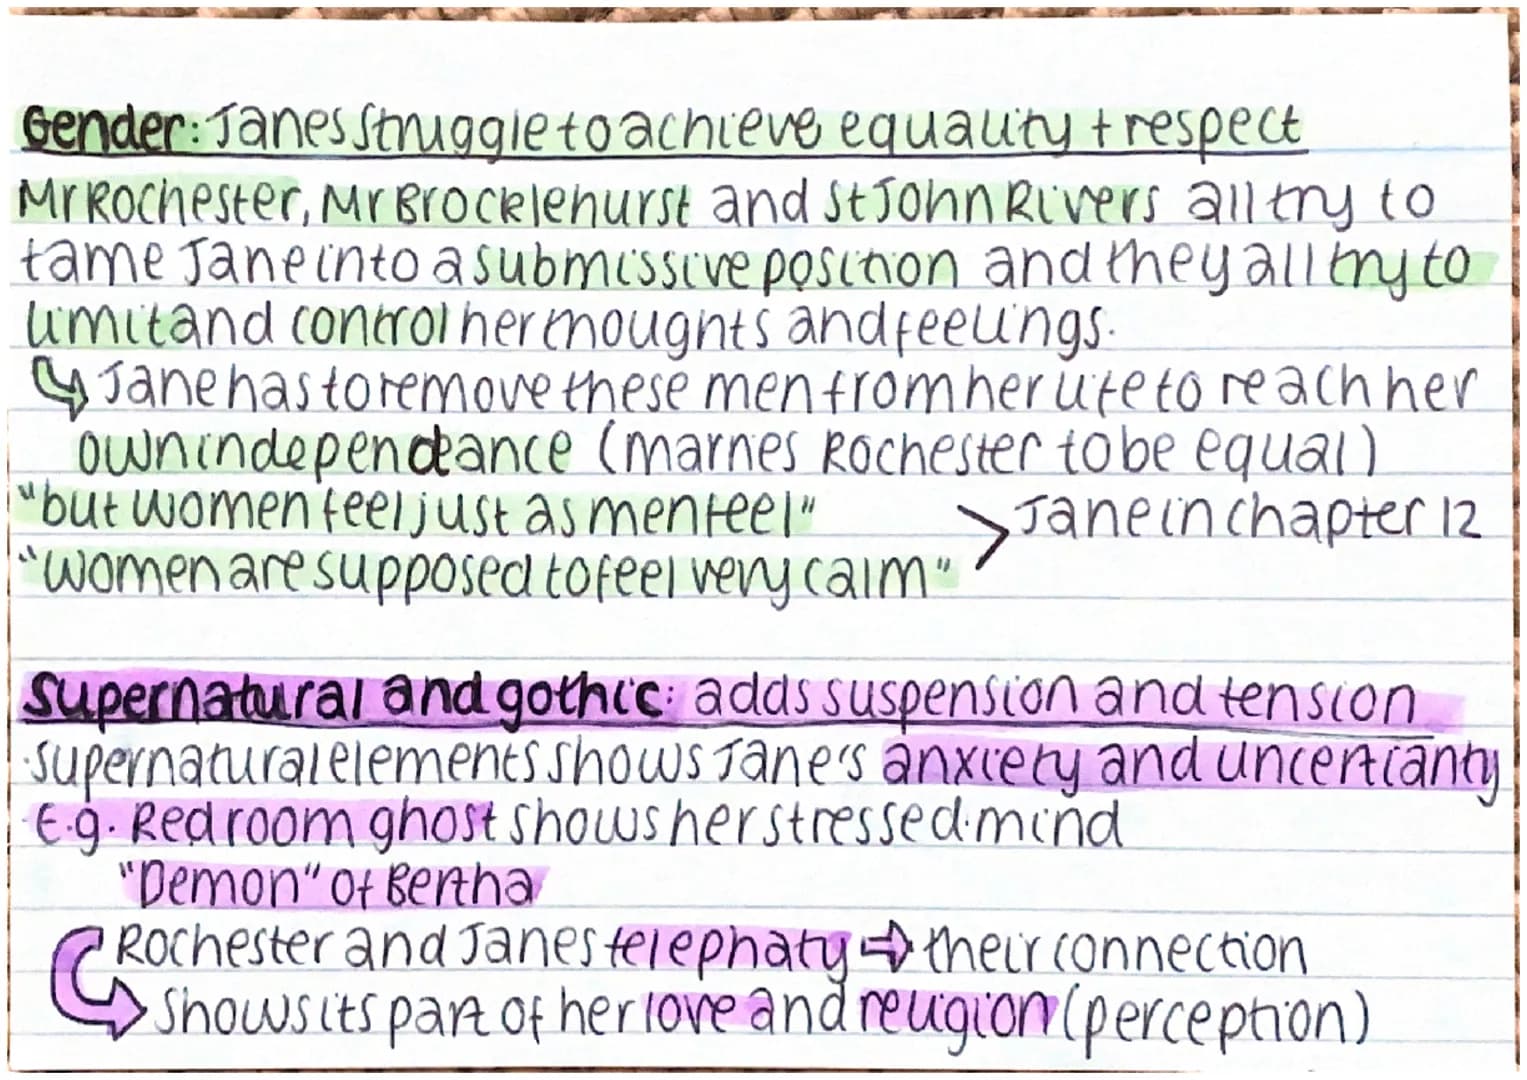 Gender: Janes struggle to achieve equality + respect
Mr Rochester, Mr Brocklehurst and St John Rivers all try to
tame Jane into a submissive position and they all try to
limit and control her thoughts and feelings.
Jane has to remove these men from her life to reach her
own independeance (marries Rochester to be equal)
"but women feel just as men feel"
"women are supposed to feel very calm"
> Jane in chapter 12
Supernatural and gothic: adds suspension and tension
·supernatural elements shows Jane's anxiety and uncertianty
E.g. Red room ghost shows her stressed mind
"Demon" of Bertha
Rochester and Janes telephaty ⇒ their connection
Shows its part of her love and religion (perception)